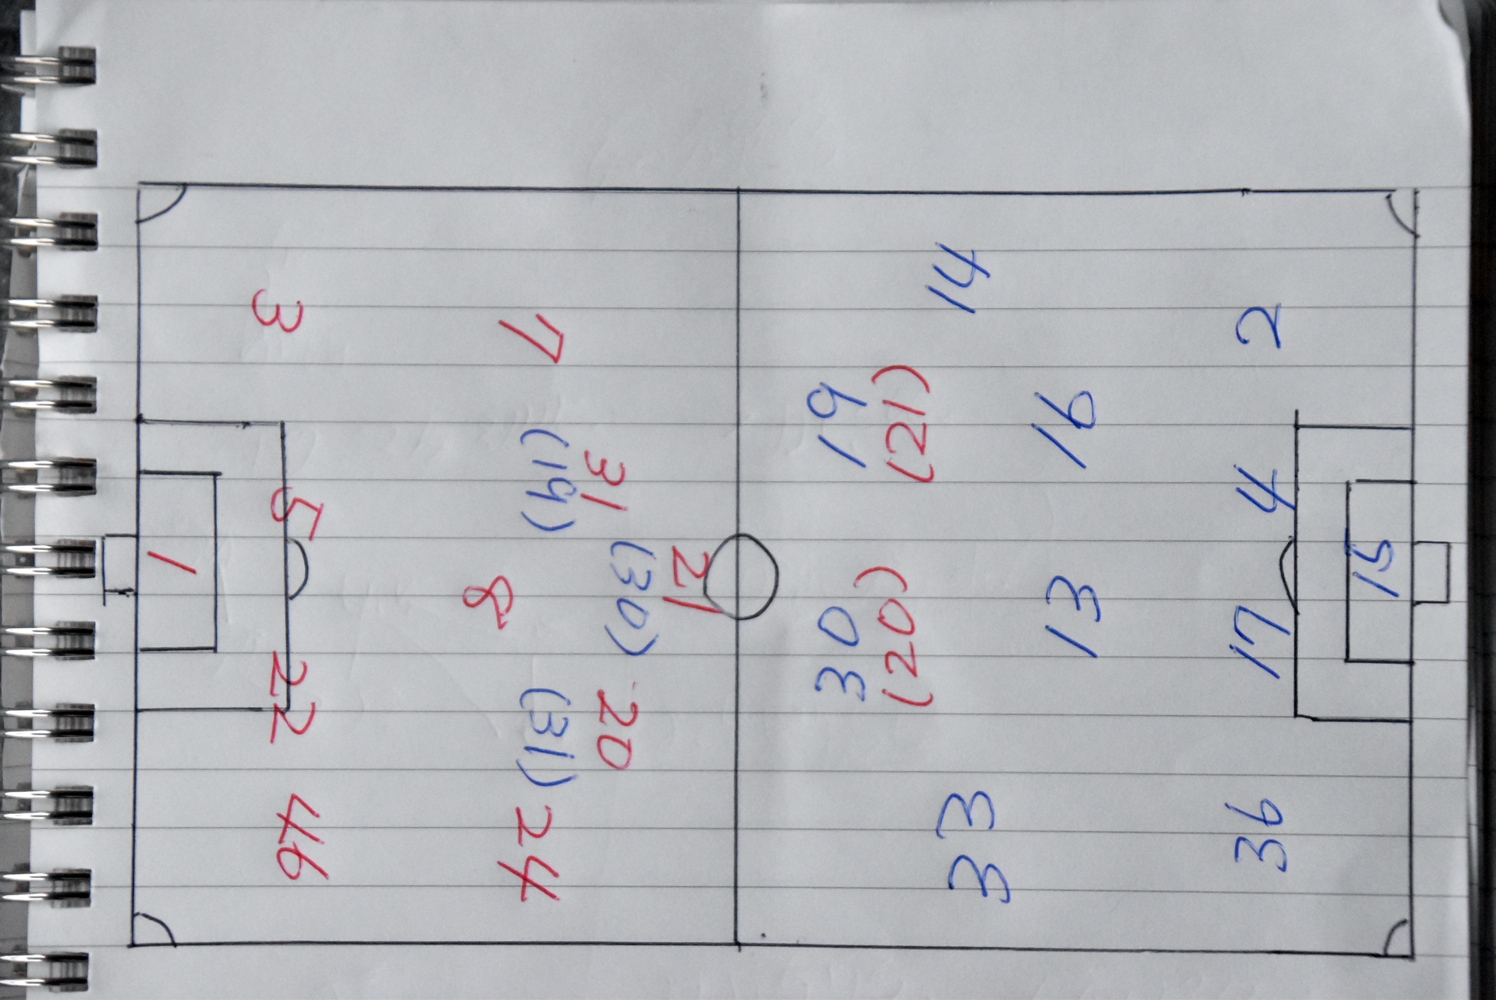 3
7
5
31
(19)
1
8
21
(30)
22
20
(31)
46
24
14
2
19
(21)
16
4
15
30
(20)
13
17
33
36